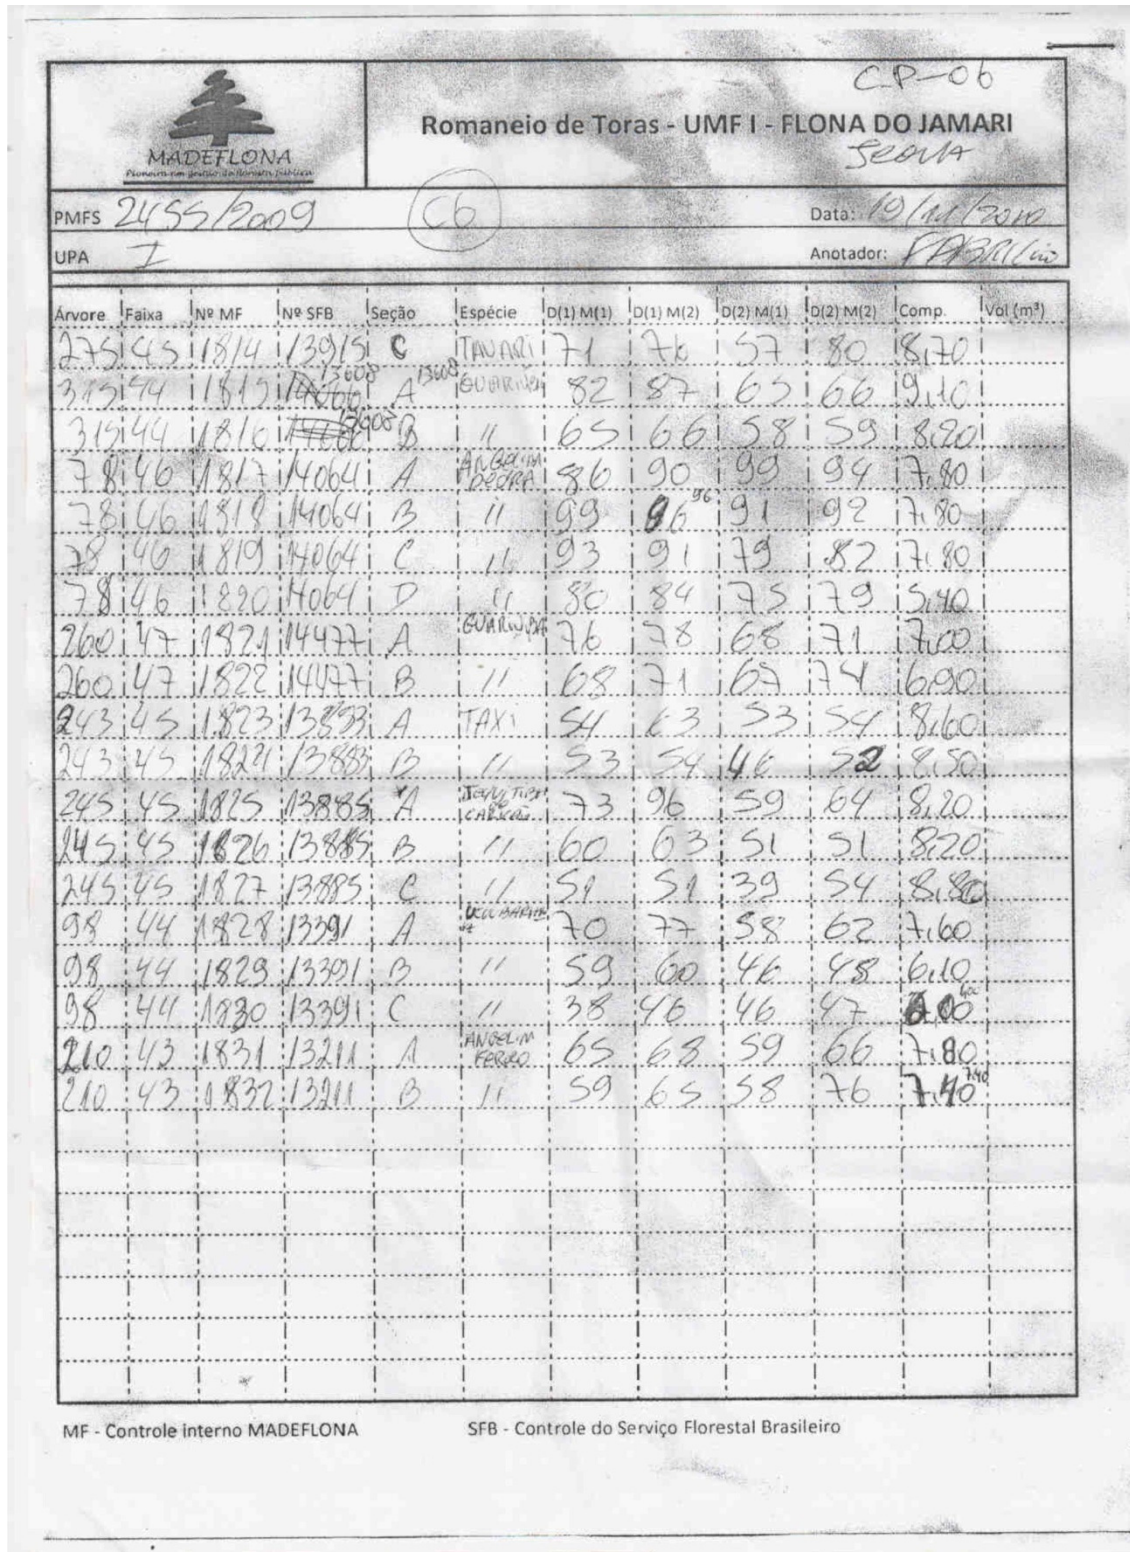 CP-06
MADEFLONA
Pioneira em gestão de floresta pública
Romaneio de Toras - UMF I - FLONA DO JAMARI
PMFS 2455/2009 C6 Data: 19/11/2010
UPA I Anotador: FABRICio
Árvore Faixa Nº MF Nº SFB Seção Espécie D(1) M(1) D(1) M(2) D(2) M(1) D(2) M(2) Comp. Vol (m³)
275 45 1814 13915 C TAUARi 71 76 57 80 8,70
315 44 1815 13608 A 13608 GUARIUBA 82 87 65 66 9,10
315 44 1816 13608 B 11 65 66 58 59 8,20
78 46 1817 14064 A ANGELIM PEDRA 86 90 99 94 7,80
78 46 1818 14064 B 11 99 96 96 91 92 7,80
78 46 1819 14064 C 11 93 91 79 82 7,80
78 46 1820 14064 D 11 80 84 75 79 5,40
260 47 1821 14477 A GUARIUBA 76 78 68 71 7,00
260 47 1822 14477 B 11 68 71 67 74 6,90
243 45 1823 13883 A TAXi 54 63 53 54 8,60
243 45 1824 13883 B 11 53 54 46 52 8,50
245 45 1825 13885 A 73 96 59 64 8,20
245 45 1826 13885 B 11 60 63 51 51 8,20
245 45 1827 13885 C 11 51 51 39 54 8,80
98 44 1828 13391 A 70 77 58 62 7,60
98 44 1829 13391 B 11 59 60 46 48 6,10
98 44 1830 13391 C 11 38 46 46 47 6,00 6,00
210 43 1831 13211 A ANGELIM FERRO 65 68 59 66 7,80
210 43 1832 13211 B 11 59 65 58 76 7,40 7,40
MF - Controle interno MADEFLONA SFB - Controle do Serviço Florestal Brasileiro